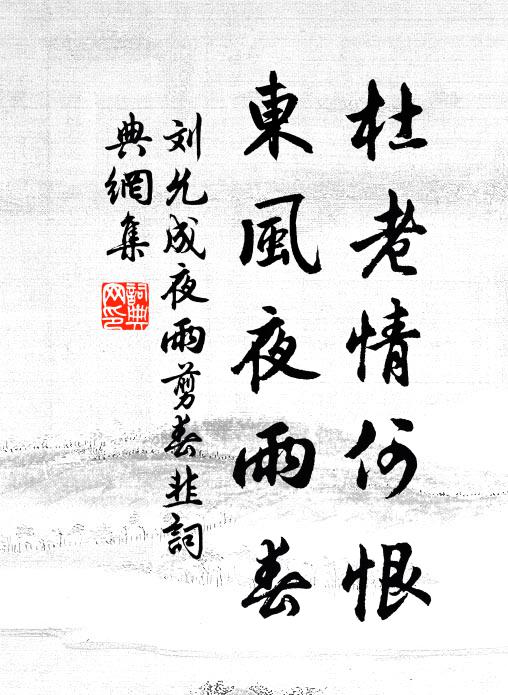 杜老情何恨
東風夜雨春
刘允成夜雨剪春韭詞
典網集
詞典网印